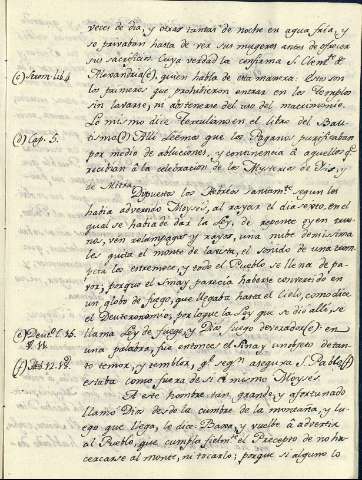 veces de dia, y otras tantas de noche en agua fria, y
se privaban hasta de ver sus mugeres antes de ofrecer
sus sacrificios. Cuya verdad la confirma S. Clemte. de
(c) Strom. lib. 4. Alexandria (c), quien habla de esta manera: Estos son
los primeros que prohibieron entrar en los Templos
sin lavarse, ni abstenerse del uso del matrimonio.
Lo mismo dice Tertuliano en el Libro del Bau-
(d) Cap. 5. tismo (d). Alli leemos que los Paganos purificaban
por medio de abluciones, y continencia à aquellos qe.
recibian à la celebracion de los Mysterios de Isis, y
de Mitra.
Dispuestos los Hebreos santamte. segun les
habia advertido Moyses, al rayar el dia sexto, en el
qual se habia de dar la Ley, de repente oyen true-
nos, ven relampagos y rayos, una nube densisima
les quita el monte de la vista, el sonido de una trom-
peta los estremece, y todo el Pueblo se llena de pa-
vor, porque el Sinay parecia haberse convertido en
un globo de fuego, que llegaba hasta el Cielo, como dice
el Deuteronomio, por lo que la Ley que se dio alli, se
(e) Deut. c. 15. llama Ley de fuego, y Dios fuego devorador (e): en
una palabra, fue entonces el Sinay un objeto de tan-
(f) 12. to temor, y temblor, qe. segn. asegura S. Pablo (f)
estaba como fuera de si el mismo Moyses.
A este hombre tan grande, y afortunado
llamo Dios desde la cumbre de la montaña, y lue-
go que llega, le dice: Baxa, y vuelve à advertir
al Pueblo, que cumpla fielmte. el Precepto de no ha-
cercarse al monte, ni tocarlo; porque si alguno lo